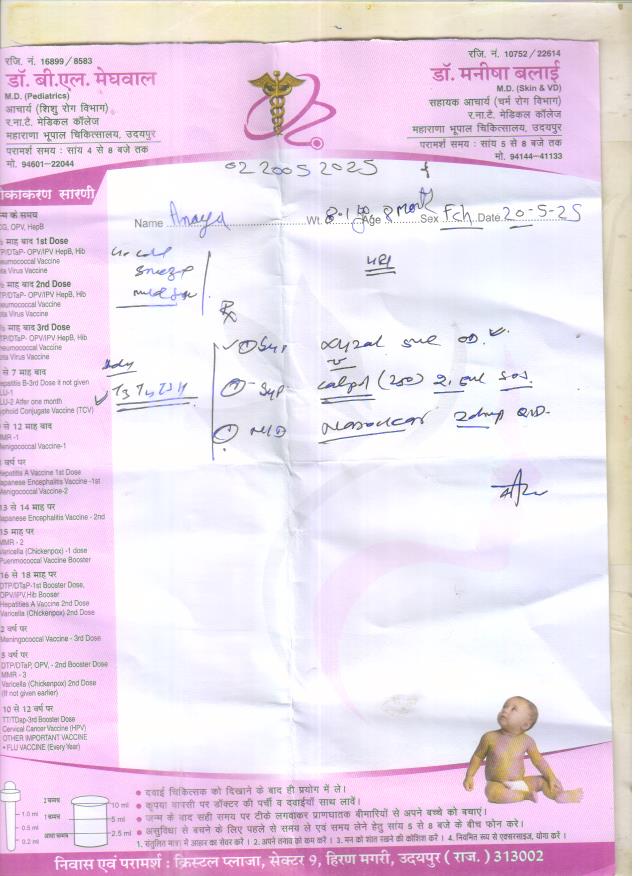 रजि. नं. 16899 / 8583
डॉ. बी.एल. मेघवाल
M.D. (Pediatrics)
आचार्य (शिशु रोग विभाग)
र.ना.टै. मेडिकल कॉलेज
महाराणा भूपाल चिकित्सालय, उदयपुर
परामर्श समय : सांय 4 से 8 बजे तक
मो. 94601-22044
रजि. नं. 10752 / 22614
डॉ. मनीषा बलाई
M.D. (Skin & VD)
सहायक आचार्य (चर्म रोग विभाग)
र.ना.टै. मेडिकल कॉलेज
महाराणा भूपाल चिकित्सालय, उदयपुर
परामर्श समय : सांय 5 से 8 बजे तक
मो. 94144-41133
02 2005 2025
Name Anaya Wt. 8.1 Age 8 Month Sex Fch Date 20-5-25
URI
Rx
① Syp
② Syp Calpol (250) SOS
③ N/D
T3 T4 TSH
टीकाकरण सारणी
जन्म के समय
OPV, HepB
माह बाद 1st Dose
DTaP- OPV/IPV HepB, Hib
Pneumococcal Vaccine
Rota Virus Vaccine
माह बाद 2nd Dose
DTaP- OPV/IPV HepB, Hib
Pneumococcal Vaccine
Rota Virus Vaccine
माह बाद 3rd Dose
DTaP- OPV/IPV HepB, Hib
Pneumococcal Vaccine
Rota Virus Vaccine
से 7 माह बाद
Hepatitis B-3rd Dose it not given
FLU-1
FLU-2 After one month
Typhoid Conjugate Vaccine (TCV)
से 12 माह बाद
MMR -1
Menigococcal Vaccine-1
वर्ष पर
Hepatitis A Vaccine 1st Dose
Japanese Encephalitis Vaccine -1st
Menigococcal Vaccine-2
13 से 14 माह पर
Japanese Encephalitis Vaccine - 2nd
15 माह पर
MMR - 2
Varicella (Chickenpox) -1 dose
Puenmococcal Vaccine Booster
16 से 18 माह पर
DTP/DTaP-1st Booster Dose,
OPV/IPV.Hib Booser
Hepatities A Vaccine 2nd Dose
Varicella (Chickenpox) 2nd Dose
2 वर्ष पर
Meningococcal Vaccine - 3rd Dose
5 वर्ष पर
DTP/DTaP, OPV, - 2nd Booster Dose
MMR - 3
Varicella (Chickenpox) 2nd Dose
(If not given earlier)
10 से 12 वर्ष पर
TT/TDap-3rd Booster Dose
Cervical Cancer Vaccine (HPV)
OTHER IMPORTANT VACCINE
• FLU VACCINE (Every Year)
1.0 ml
0.5 ml
0.2 ml
2 चम्मच
1 चम्मच
आधा चम्मच
10 ml
5 ml
2.5 ml
• दवाई चिकित्सक को दिखाने के बाद ही प्रयोग में ले।
• कृपया वापसी पर डॉक्टर की पर्ची व दवाईयाँ साथ लावें।
• जन्म के बाद सही समय पर टीके लगवाकर प्राणघातक बीमारियों से अपने बच्चे को बचाएं।
• असुविधा से बचने के लिए पहले से समय ले एवं समय लेने हेतु सांय 5 से 8 बजे के बीच फोन करे।
1. संतुलित मात्रा में आहार का सेवन करें । 2. अपने तनाव को कम करें । 3. मन को शांत रखने की कोशिश करें । 4. नियमित रूप से एक्सरसाइज, योगा करें ।
निवास एवं परामर्श : क्रिस्टल प्लाजा, सेक्टर 9, हिरण मगरी, उदयपुर ( राज. ) 313002